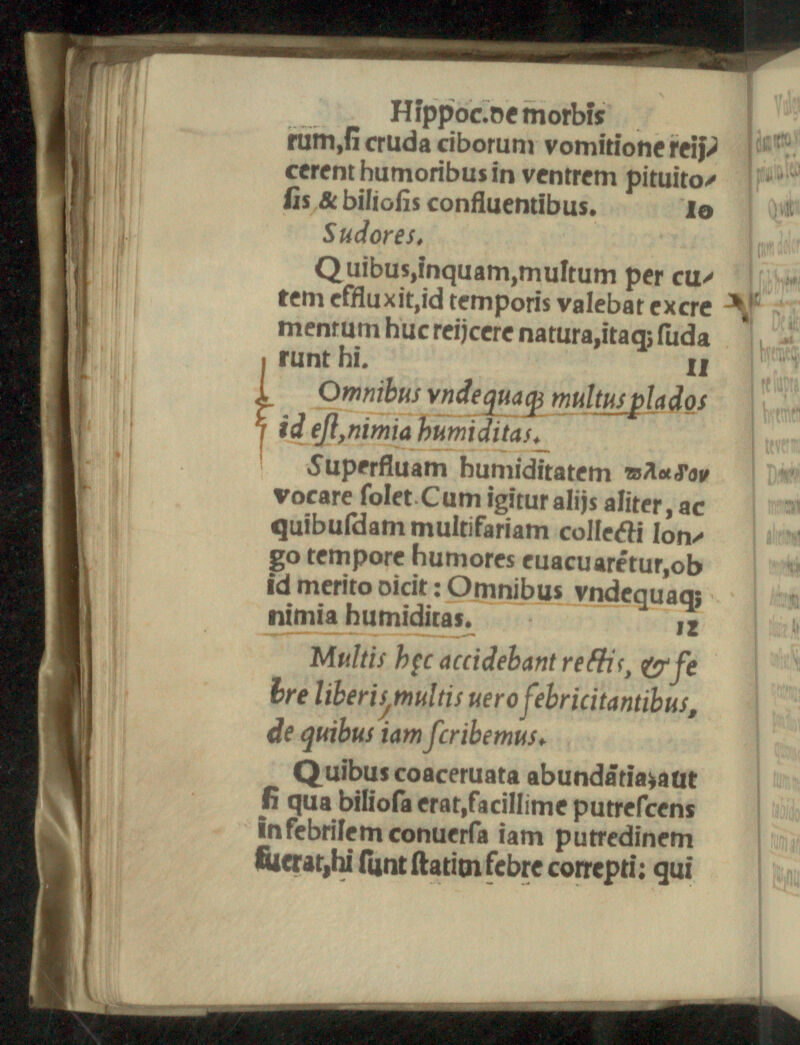 Hippoc.de morbis
rum,ſi cruda ciborum vomitione reij⸗
cerent humoribus in ventrem pituito⸗
ſis & bilioſis confluentibus. 10
Sudores.
Quibus,inquam,multum per cu⸗
tem effluxit,id temporis valebat excre
mentum huc reijcere natura,itaq; ſuda
runt hi. 11
Omnibus vndequaq; multus plados
id eſt,nimia humiditas.
Superfluam humiditatem πλαδον
vocare ſolet.Cum igitur alijs aliter, ac
quibuſdam multifariam collecti lon⸗
go tempore humores euacuarẽtur,ob
id merito dicit : Omnibus vndequaq;
nimia humiditas. 12
Multis hęc accidebant rectis, & fe
bre liberis,multis uero febricitantibus,
de quibus iam ſcribemus.
Quibus coaceruata abundãtia,aut
ſi qua bilioſa erat,facillime putreſcens
in febrilem conuerſa iam putredinem
fuerat,hi ſunt ſtatim febre correpti: qui